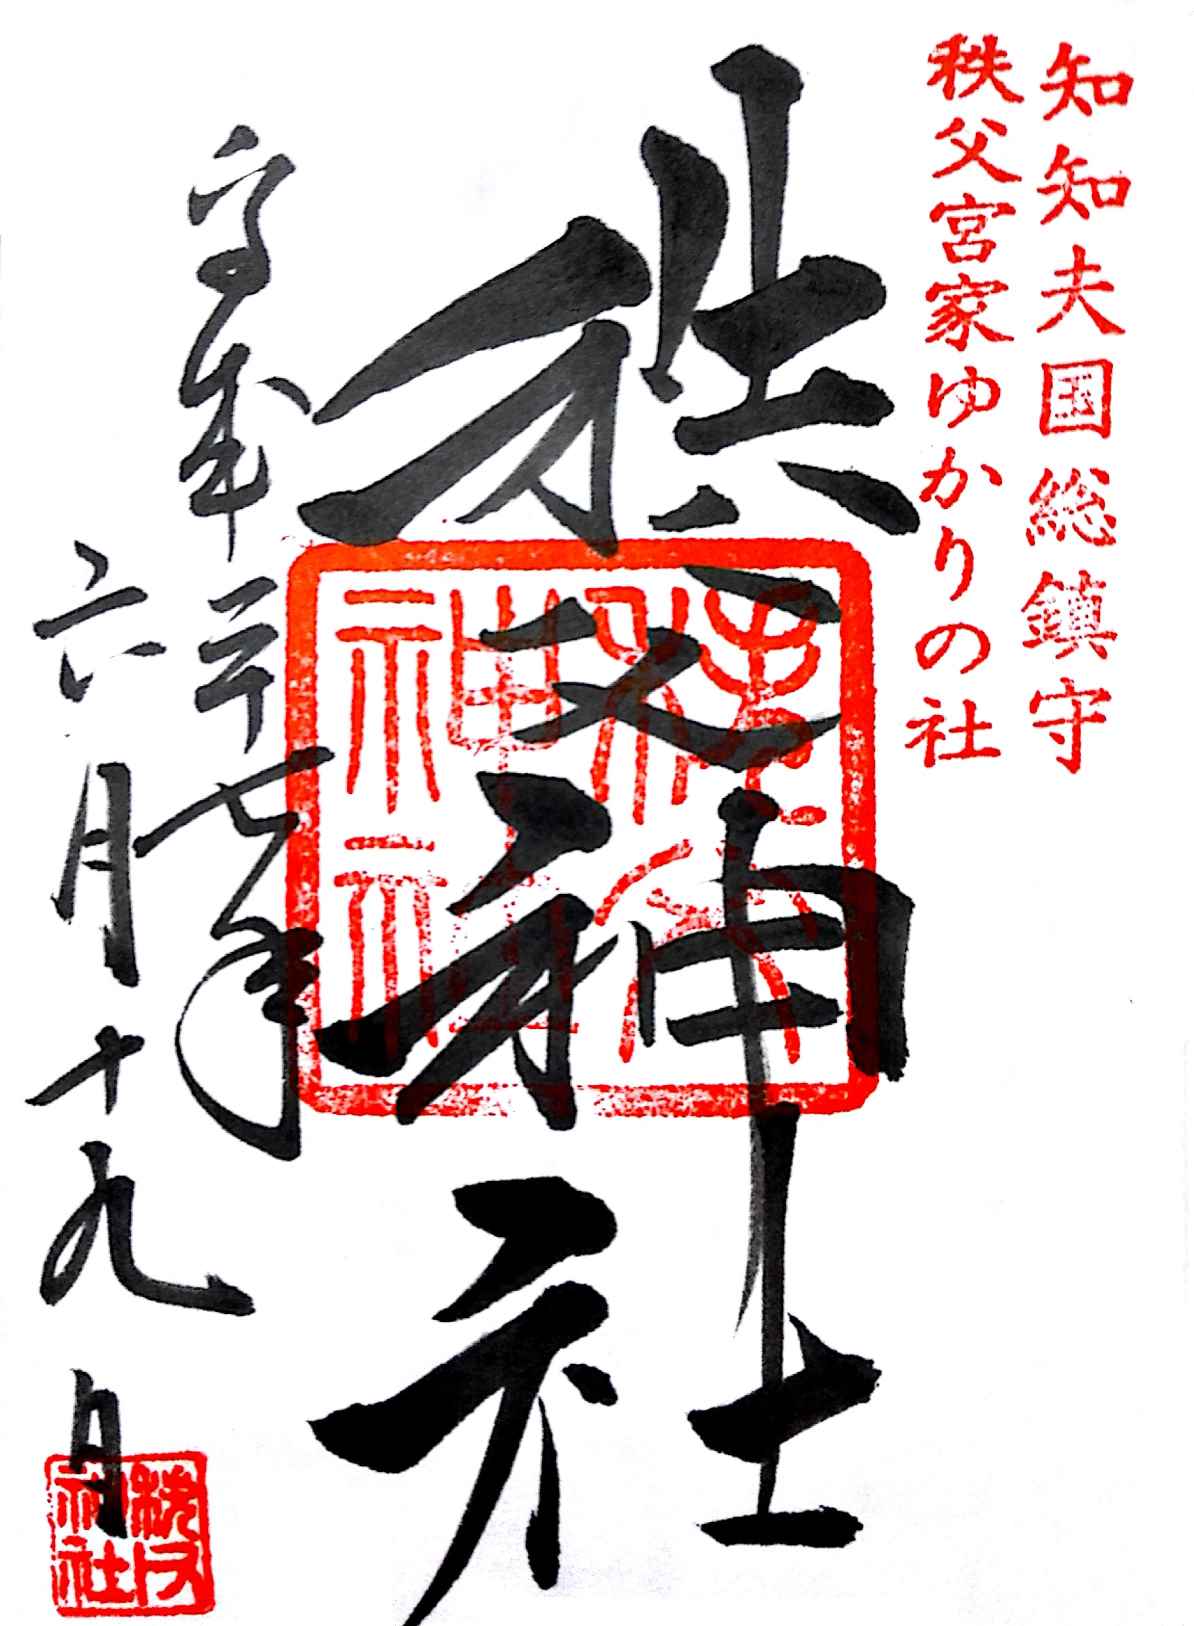 知知夫国総鎮守
秩父宮家ゆかりの社
秩父神社
秩父
神社
平成二十七年
六月十九日
秩父
神社